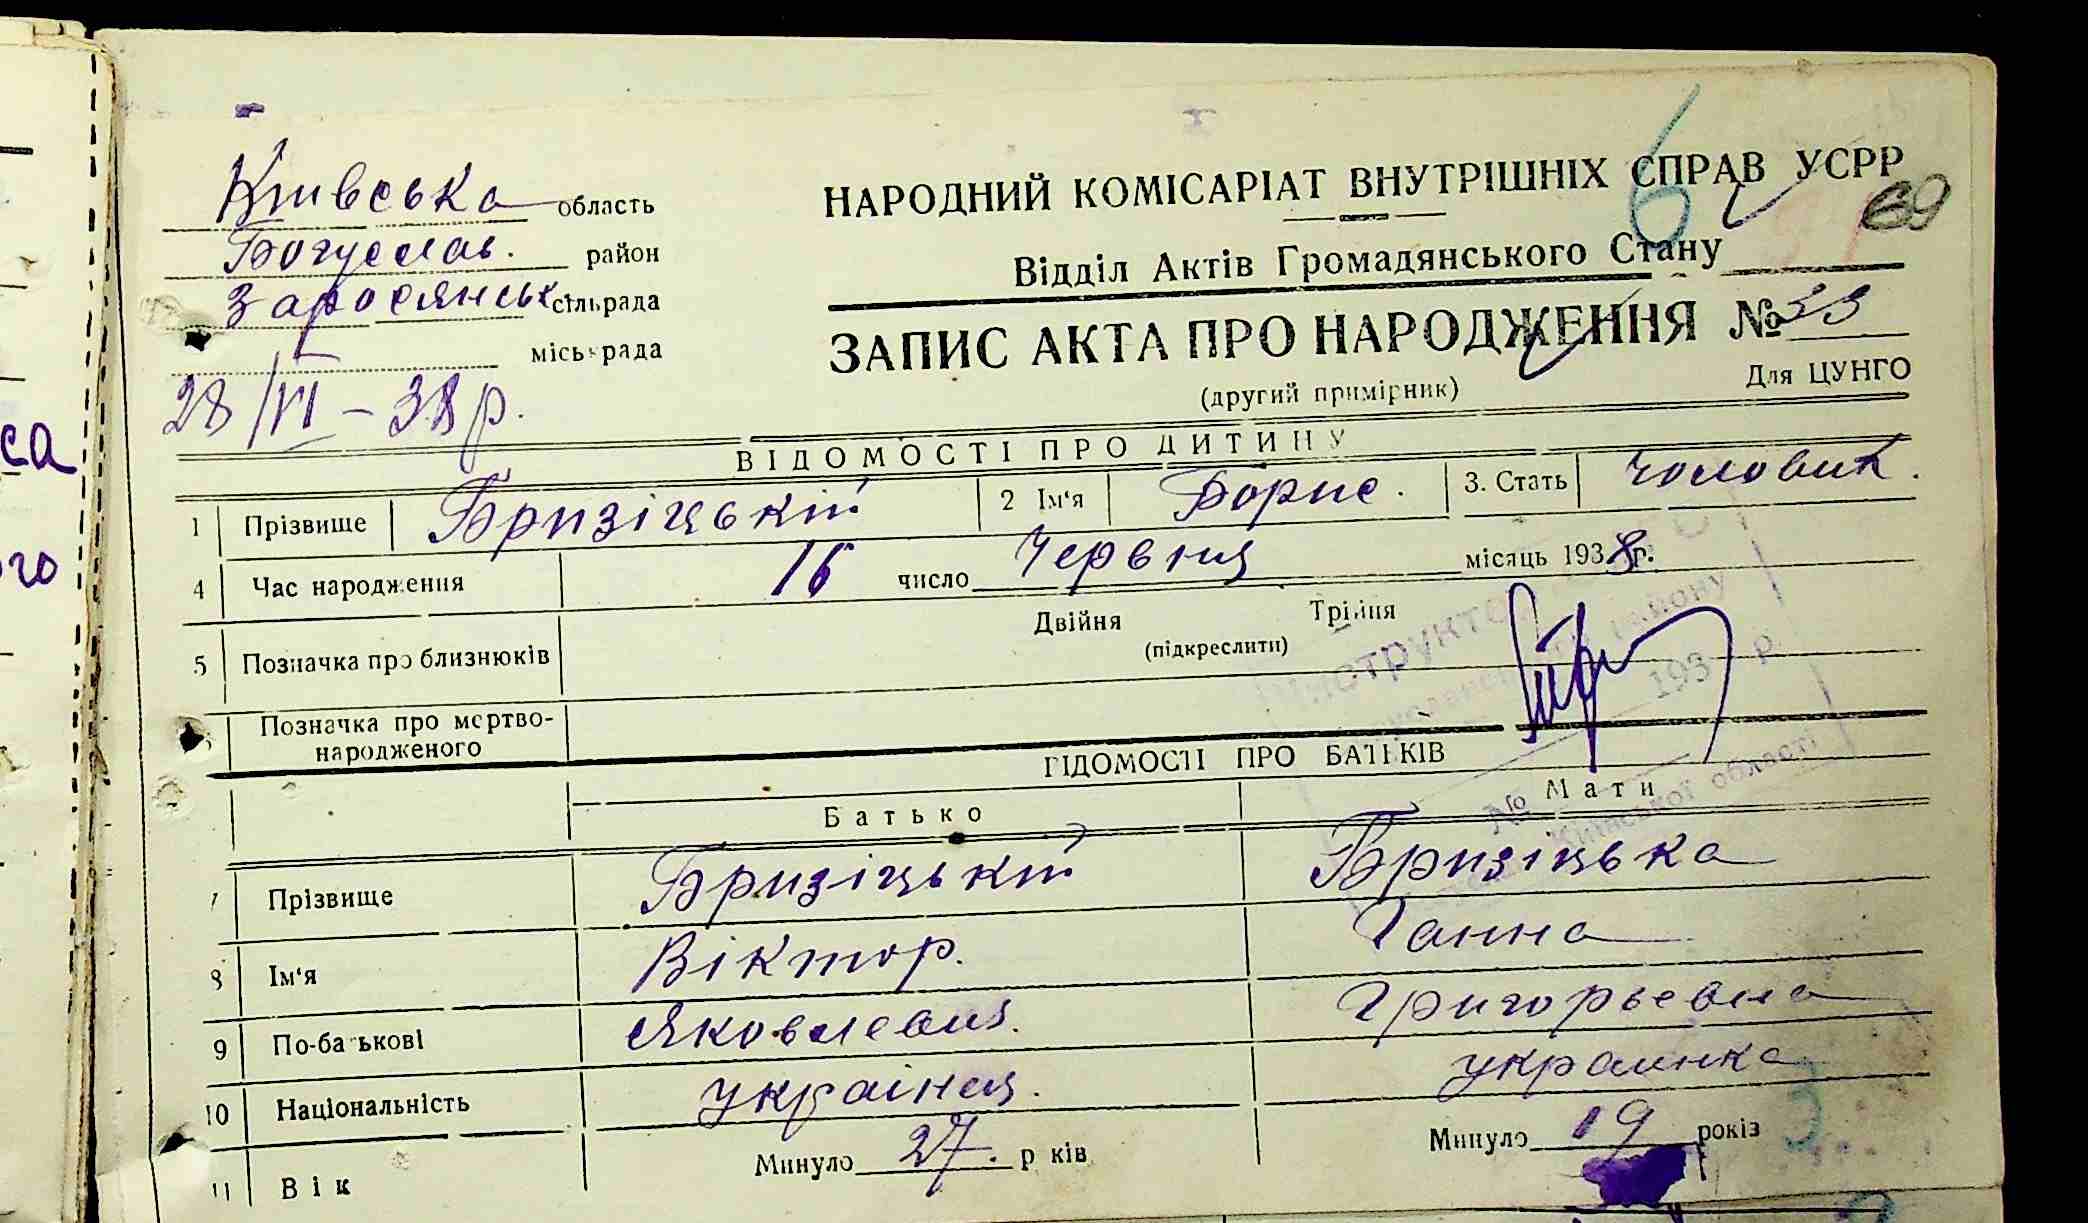 Київська область
Богуслав. район
Заросянськ сільрада
міськрада
28/VI – 38 р.
6
69
НАРОДНИЙ КОМІСАРІАТ ВНУТРІШНІХ СПРАВ УСРР
Відділ Актів Громадянського Стану
ЗАПИС АКТА ПРО НАРОДЖЕННЯ № 33
(другий примірник)
Для ЦУНГО
ВІДОМОСТІ ПРО ДИТИНУ
1 Прізвище Бризіцький 2 Ім'я Борис. 3. Стать чоловик.
4 Час народження 16 число Червня місяць 1938 р.
5 Позначка про близнюків Двійня Трійня
(підкреслити)
Позначка про мертво-
народженого
ВІДОМОСТІ ПРО БАТЬКІВ
Батько Мати
7 Прізвище Бризіцький Бризіцька
8 Ім'я Віктор. Ганна
9 По-батькові Яковлевич. Григорьевна
10 Національність украінец. украинка
11 Вік Минуло 27. років Минуло 19 років
Інструктор
району
193 р.
№
Київської області
са
ого